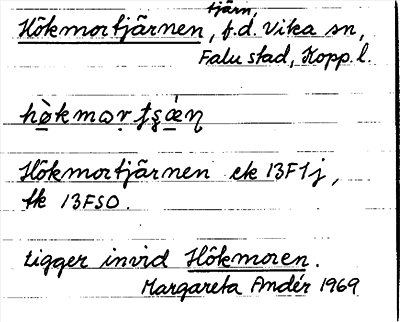 tjärn,
Hökmortjärnen, f.d. Vika sn,
Falu stad, Kopp. l.
Hökmortjärnen ek 13F1j,
tk 13FSO.
ligger invid Hökmoren.
Margareta Andér 1969